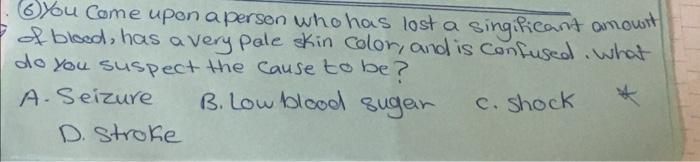 . ⑥ You Come upon a person who has lost a singificant amount
of blood, has a very pale skin color, and is confused. What
do you suspect the cause to be?
A. Seizure B. Low blood sugar C. shock *
D. Stroke